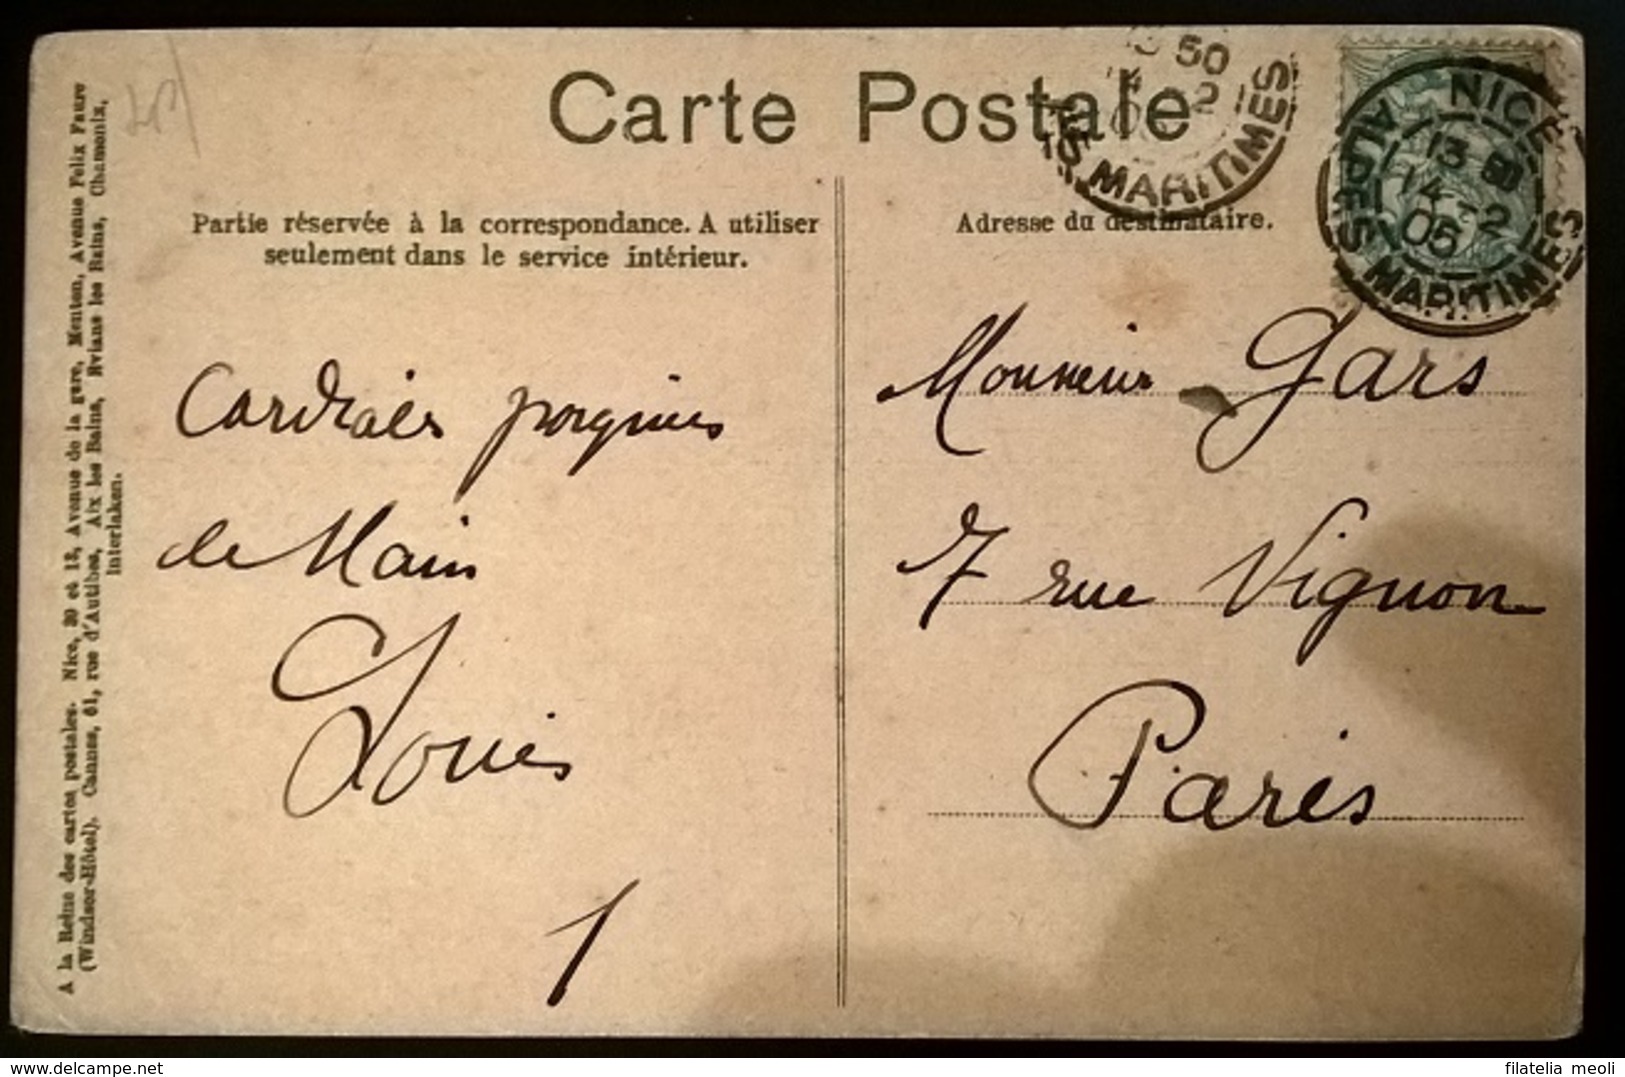 Carte Postale
50
2
ES MARITIMES
NICE
13 30
14 - 2
05
ALPES MARITIMES
Partie réservée à la correspondance. A utiliser
seulement dans le service intérieur.
Adresse du destinataire.
A la Reine des cartes postales. Nice, 30 et 13, Avenue de la gare, Menton, Avenue Felix Faure
(Windsor-Hôtel). Cannes, 61, rue d'Antibes, Aix les Bains, Evians les Bains, Chamonix,
Interlaken.
Cordiales poignées
de Main
Louis
Monsieur Gars
7 rue Vignon
Paris
filatelia meoli
www.delcampe.net